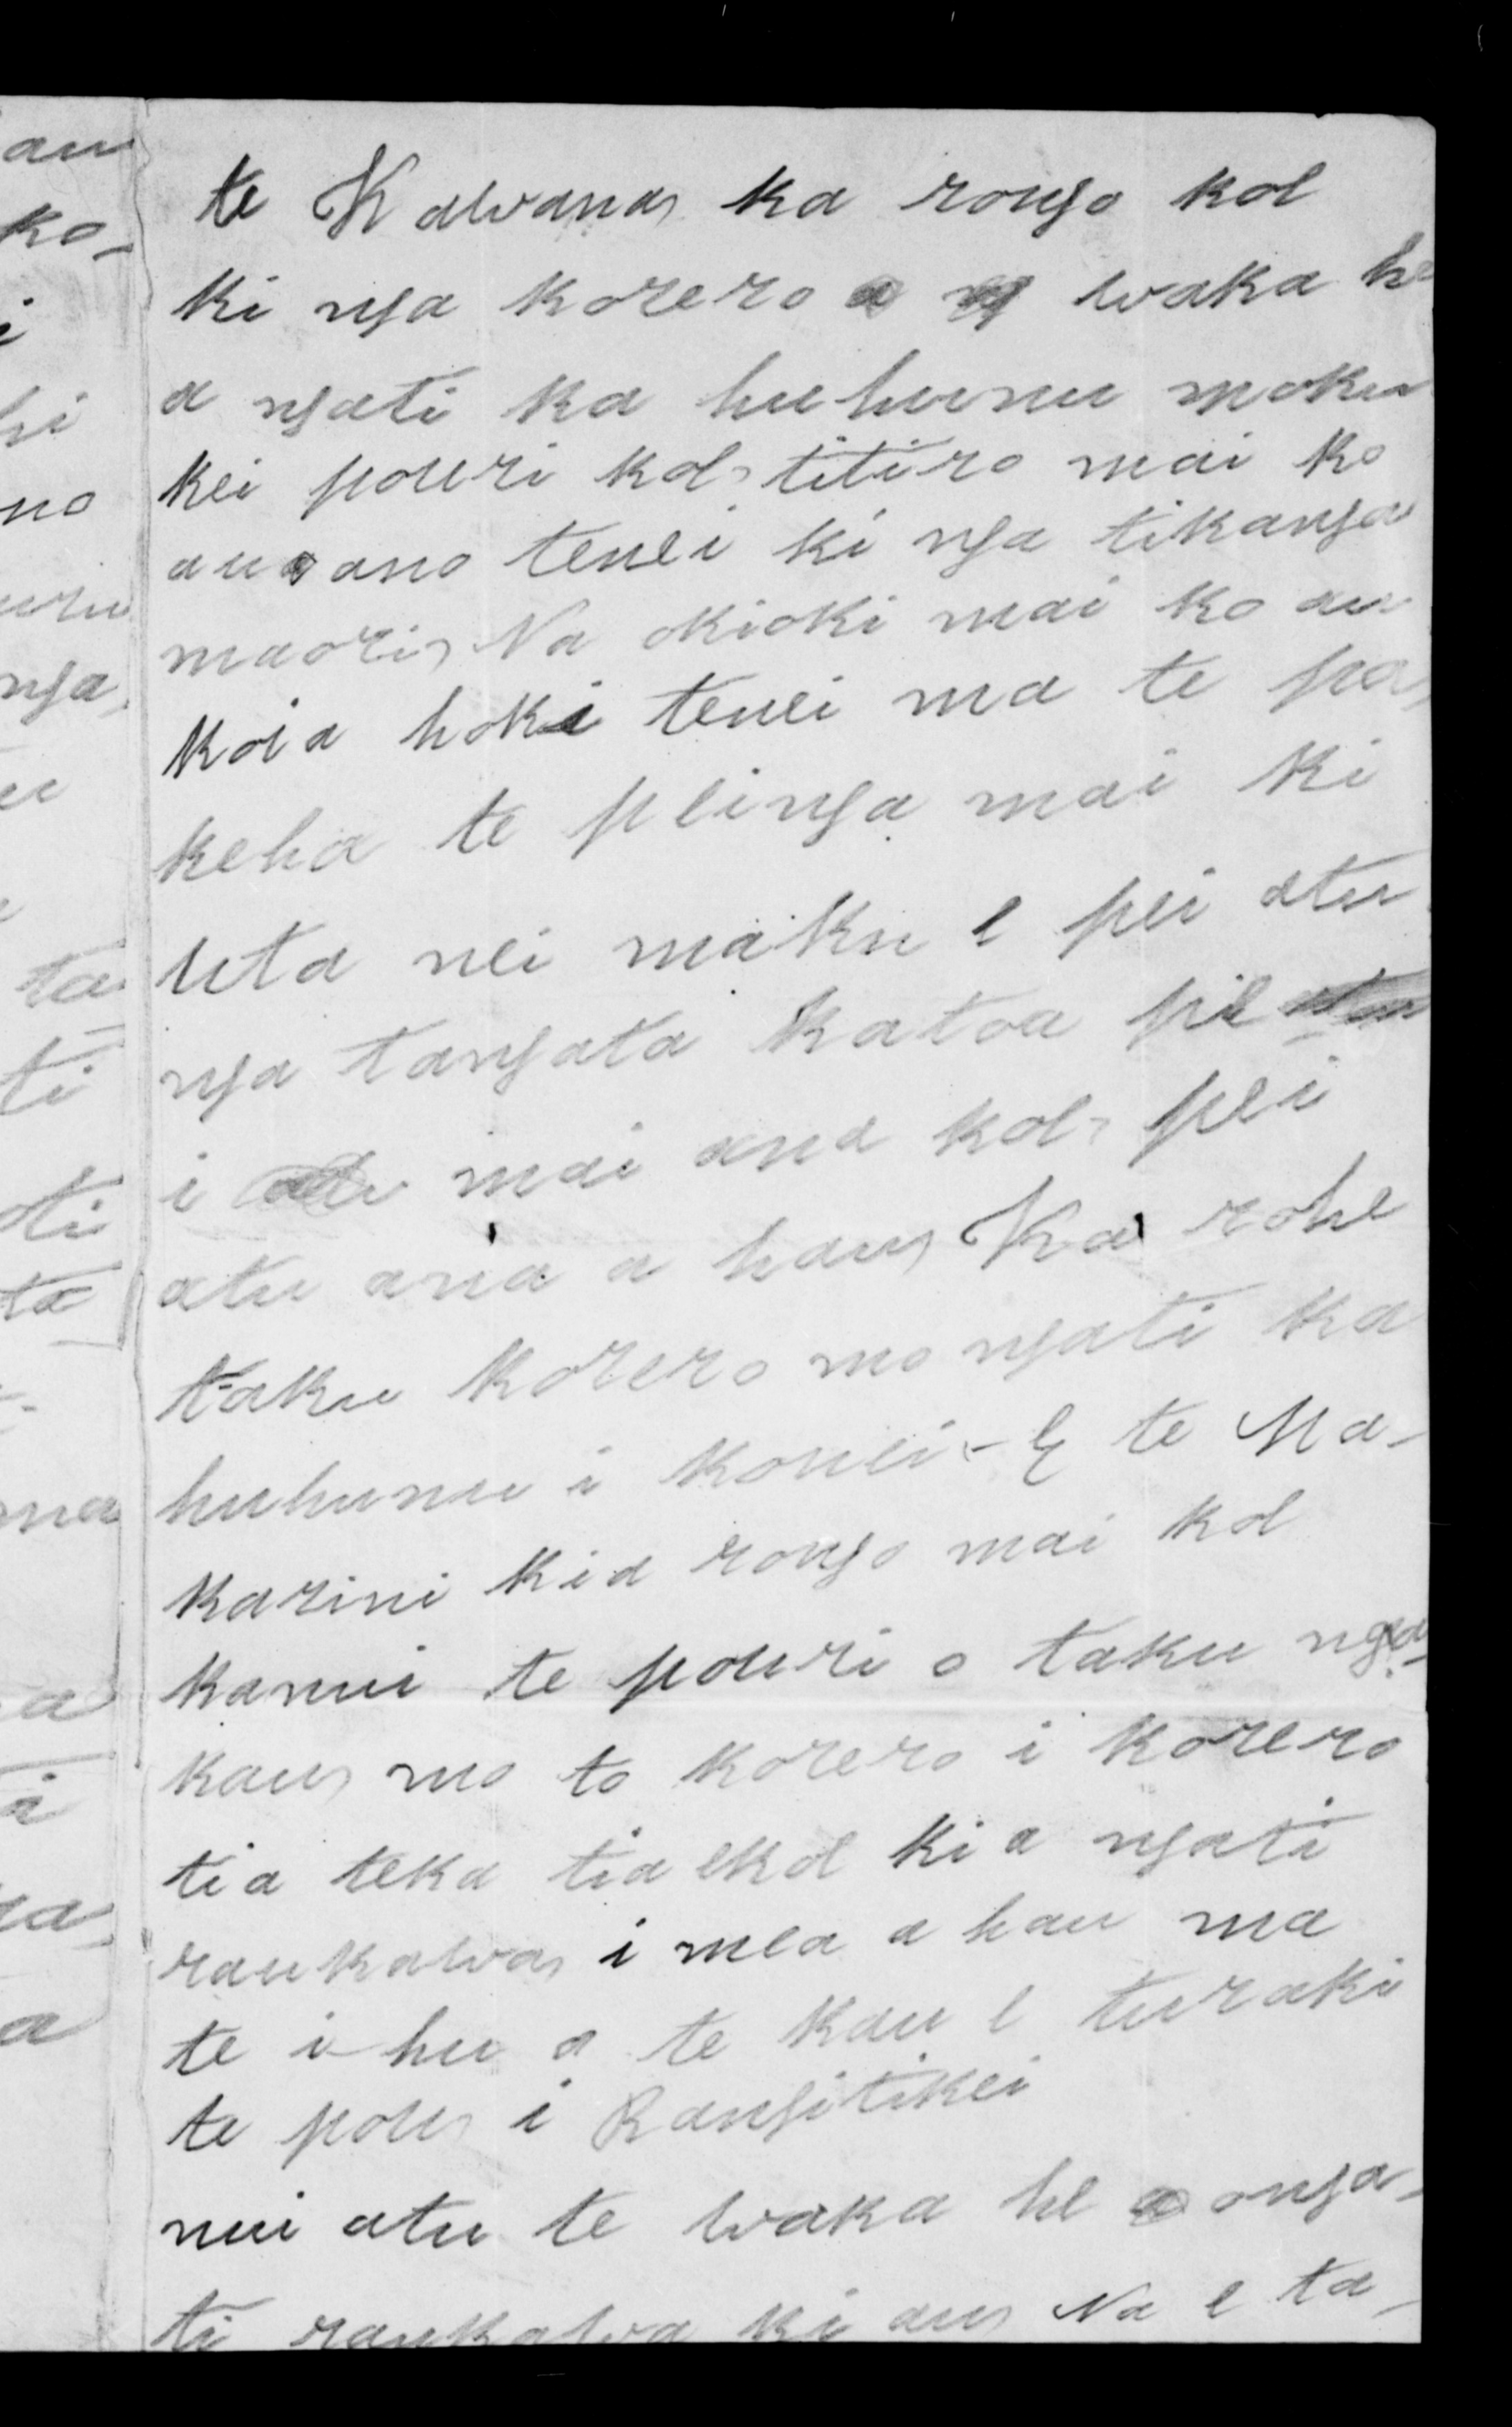 te Kawana, ka rongo koe
ki nga korero waka he
a ngati ka huhunu moku
kei pouri koe, titiro mai ko
au ano tenei ki nga tikanga
maori, Na okioki mai ko au
koia hoki tenei ma te pa,
keha te peinga mai ki
uta nei maku e pei atu
nga tangata katoa pe
i mai ana koe, pei
atu ana a hau, Ka rohe
taku korero mo ngati ka
huhunu i konei - E te Ma-
karini kia rongo mai koe
kanui te pouri o taku nga-
kau, mo to korero i korero
tia teka tia ekoe kia ngati
raukawa, i mea a hau ma
te i-hu o te kau e turaki
te pou, i Rangitikei
nui atu te waka he onga-
ti raukawa ki au, Na e ta-
an
ko-
i
hi
no
uru
nga,
u
ta
ti
oti
ta
ona
a
i
a